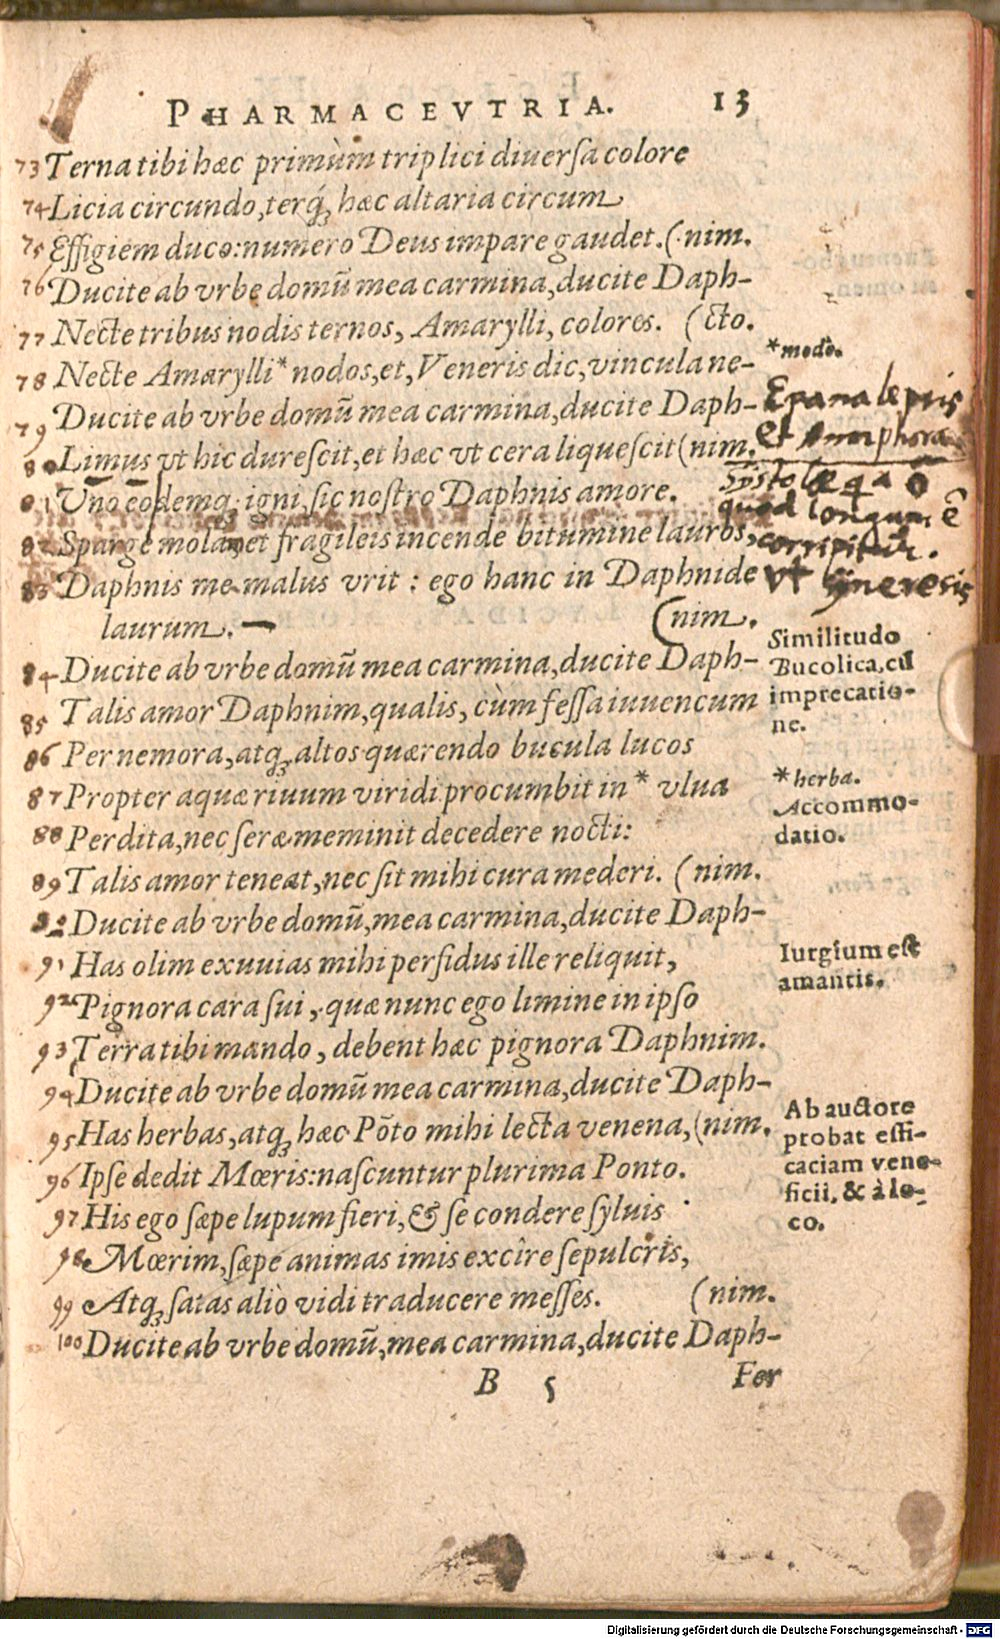 PHARMACEVTRIA. 13
73 Terna tibi hæc primùm triplici diuersa colore
74 Licia circundo, terq́; hæc altaria circum
75 Effigiem duco: numero Deus impare gaudet. (nim.
76 Ducite ab vrbe domū mea carmina, ducite Daph-
77 Necte tribus nodis ternos, Amarylli, colores. (cto.
78 Necte Amarylli * nodos, et, Veneris dic, vincula ne-
79 Ducite ab vrbe domū mea carmina, ducite Daph-
80 Limus vt hic durescit, et hæc vt cera liquescit (nim.
81 Uno eodemq; igni, sic nostro Daphnis amore.
82 Sparge molam et fragileis incende bitumine lauros,
83 Daphnis me malus vrit : ego hanc in Daphnide
laurum. (nim.
84 Ducite ab vrbe domū mea carmina, ducite Daph-
85 Talis amor Daphnim, qualis, cùm fessa iuuencum
86 Per nemora, atq; altos quærendo bucula lucos
87 Propter aquæ riuum viridi procumbit in * vlua
88 Perdita, nec seræ meminit decedere nocti:
89 Talis amor teneat, nec sit mihi cura mederi. (nim.
Ducite ab vrbe domū, mea carmina, ducite Daph-
91 Has olim exuuias mihi perfidus ille reliquit,
92 Pignora cara sui, quæ nunc ego limine in ipso
93 Terra tibi mando, debent hæc pignora Daphnim.
94 Ducite ab vrbe domū mea carmina, ducite Daph-
95 Has herbas, atq; hæc Pōto mihi lecta venena, (nim.
96 Ipse dedit Mœris: nascuntur plurima Ponto.
97 His ego sæpe lupum fieri, & se condere syluis
98 Mœrim, sæpe animas imis excîre sepulcris,
99 Atq; satas aliò vidi traducere messes. (nim.
100 Ducite ab vrbe domū, mea carmina, ducite Daph-
B 5 Fer
* modò.
Epanalepsis
et Anaphora
systole qa o
quod longum ē
corripitur.
vt syneresis
Similitudo
Bucolica, cū
imprecatio-
ne.
* herba.
Accommo-
datio.
Iurgium est
amantis.
Ab auctore
probat effi-
caciam vene-
ficii, & à lo-
co.
Digitalisierung gefördert durch die Deutsche Forschungsgemeinschaft - DFG